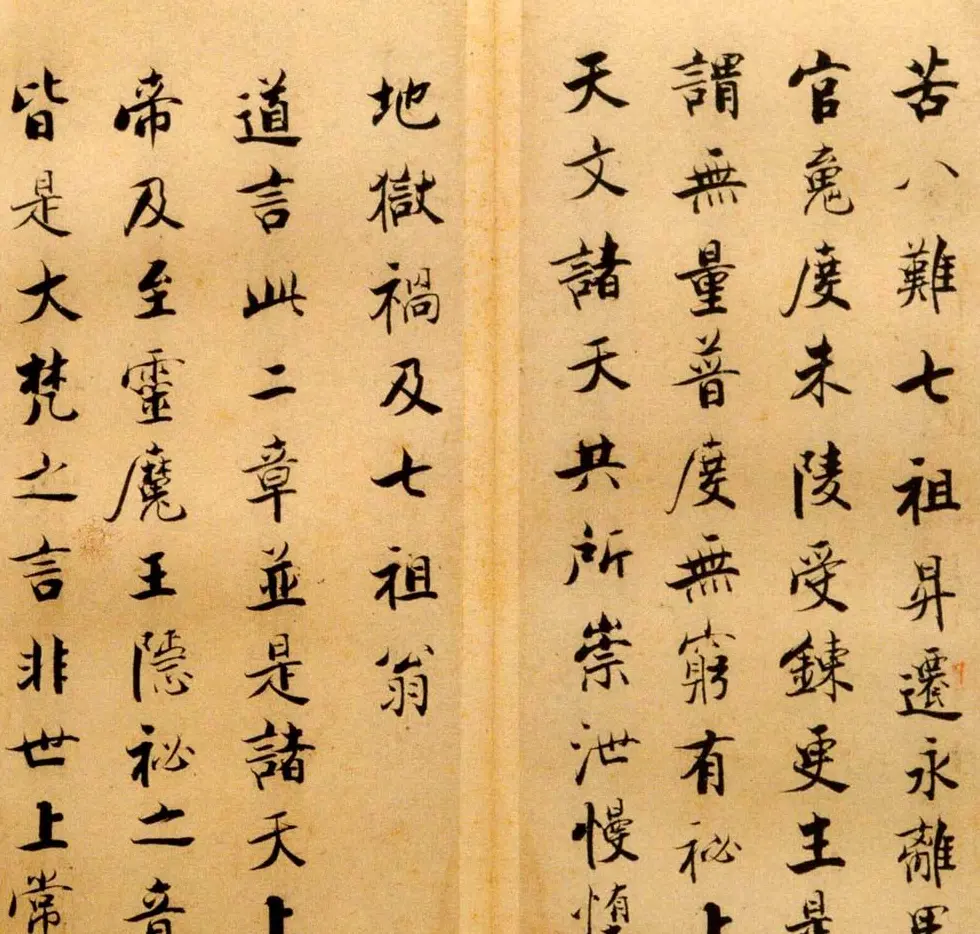 苦八難七祖昇遷永離
官䰟度未陵受鍊更主是
謂無量普度無窮有祕上
天文諸天共所崇泄慢惰
地獄禍及七祖翁
道言此二章並是諸天上
帝及至靈魔王隱祕之音
皆是大梵之言非世上常